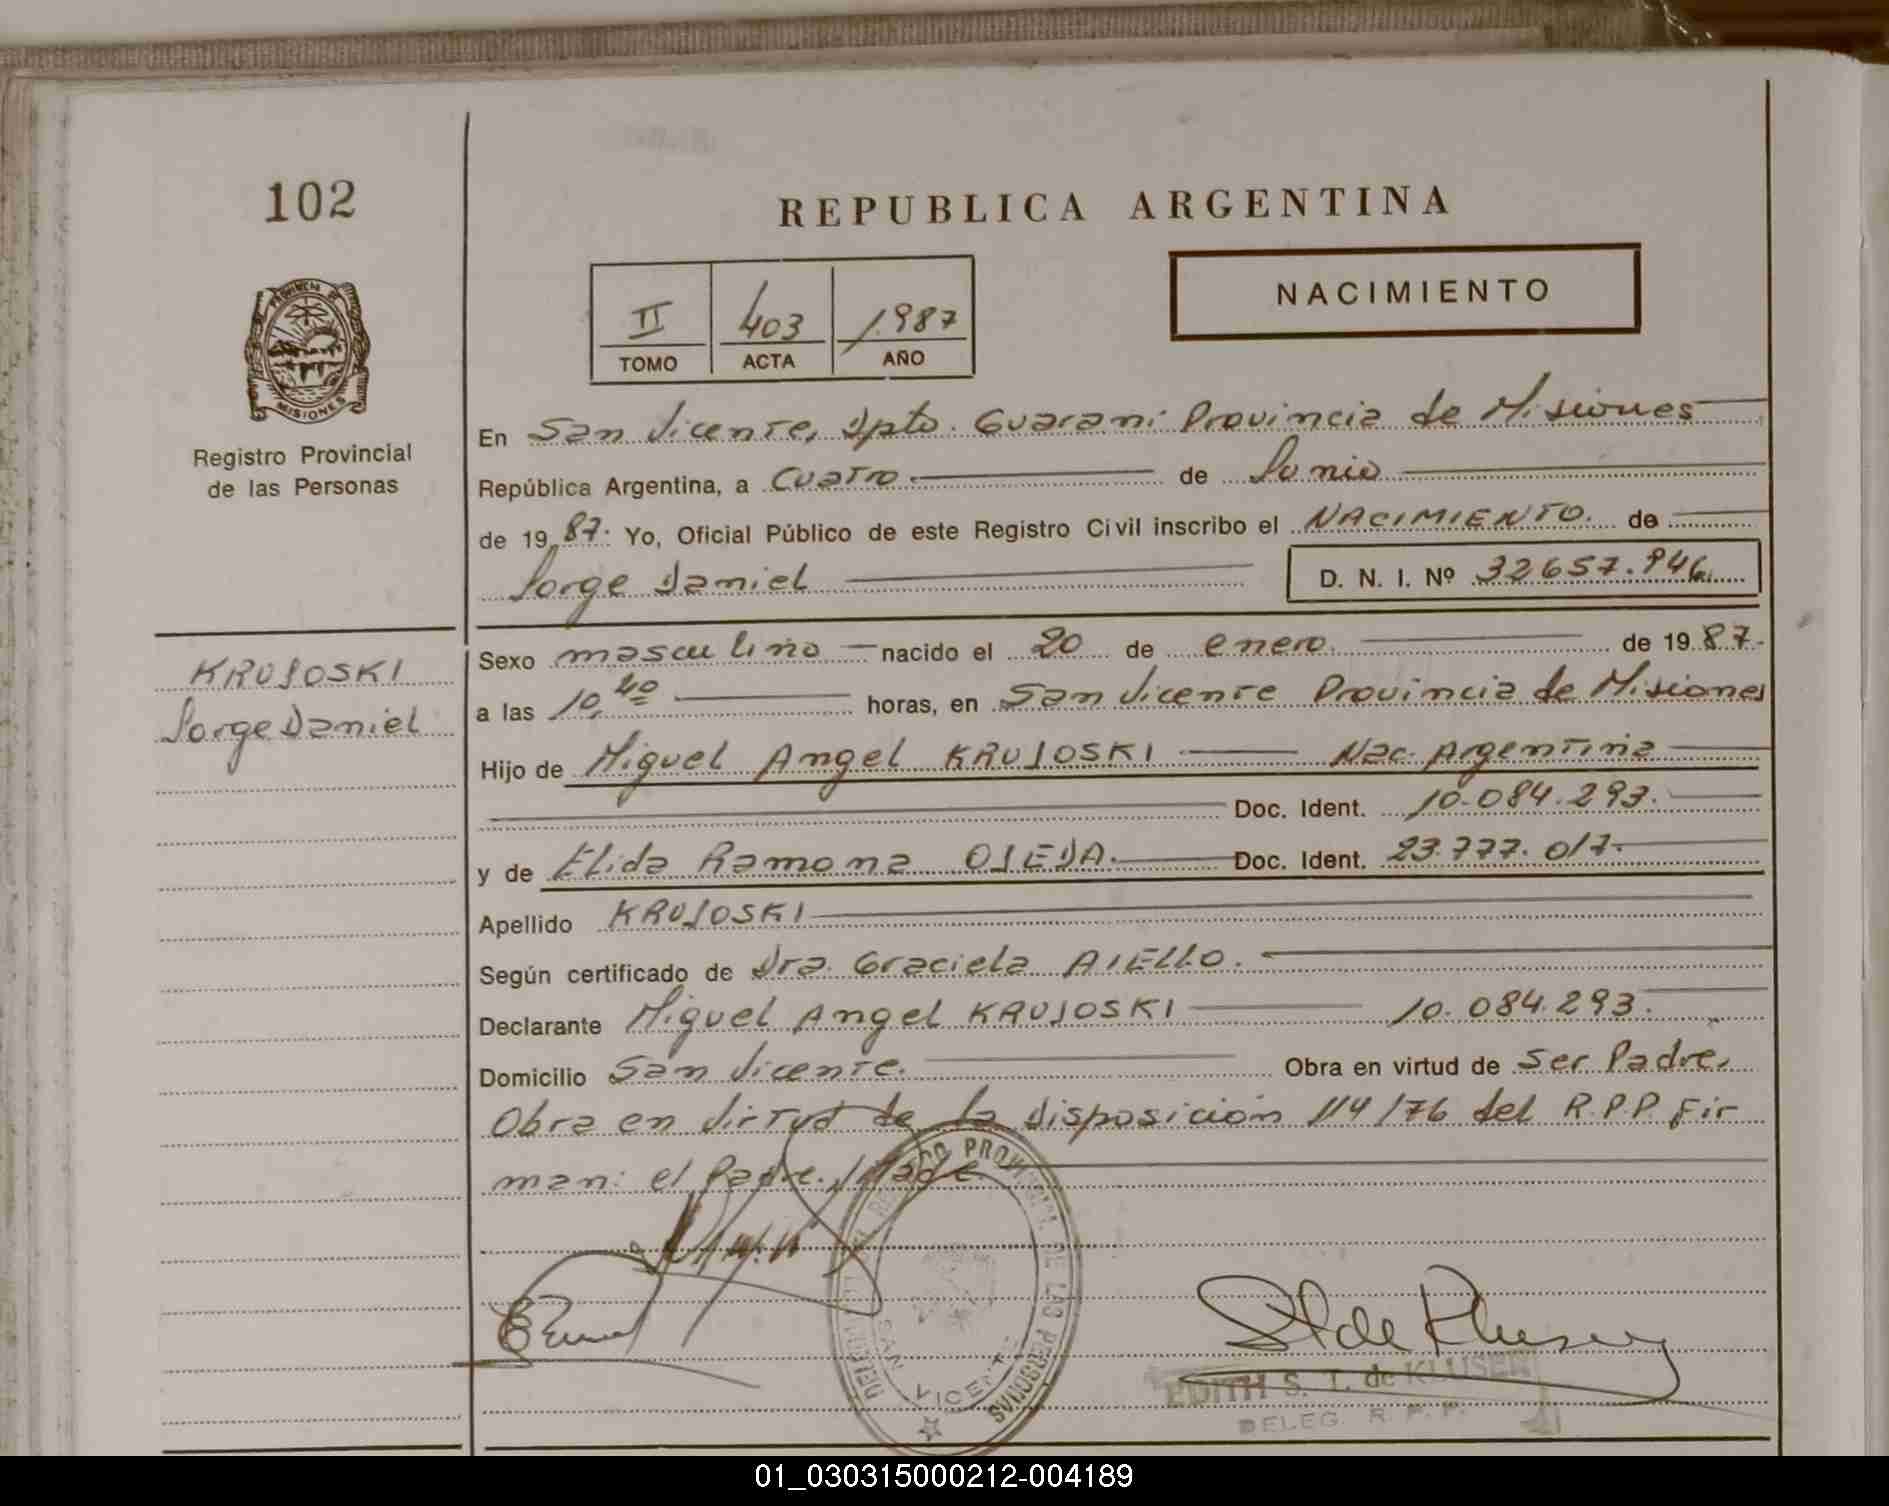 102
REPUBLICA ARGENTINA
II 403 1.987
TOMO ACTA AÑO
NACIMIENTO
PROVINCIA DE MISIONES
Registro Provincial
de las Personas
En San Vicente, Dpto. Guarani Provincia de Misiones
República Argentina, a Cuatro de Junio
de 19 87. Yo, Oficial Público de este Registro Civil inscribo el NACIMIENTO. de
Jorge Daniel D. N. I. Nº 32657.946
KRUJOSKI
Jorge Daniel
Sexo masculino nacido el 20 de enero de 19 87.
a las 10,40 horas, en San Vicente Provincia de Misiones
Hijo de Miguel Angel KRUJOSKI Nac. Argentina
Doc. Ident. 10.084.293.
y de Elida Ramona OJEDA. Doc. Ident. 23.777.017.
Apellido KRUJOSKI
Según certificado de Dra. Graciela AIELLO.
Declarante Miguel Angel KRUJOSKI 10.084.293.
Domicilio San Vicente. Obra en virtud de Ser Padre,
Obra en Virtud de la disposición 114/76 del R.P.P. Fir
man: el Padre y Made
REGISTRO PROVINCIAL DE LAS PERSONAS
SAN VICENTE
EDITH S. T. de KLUSEN
DELEG. R. P. P.
01_030315000212-004189